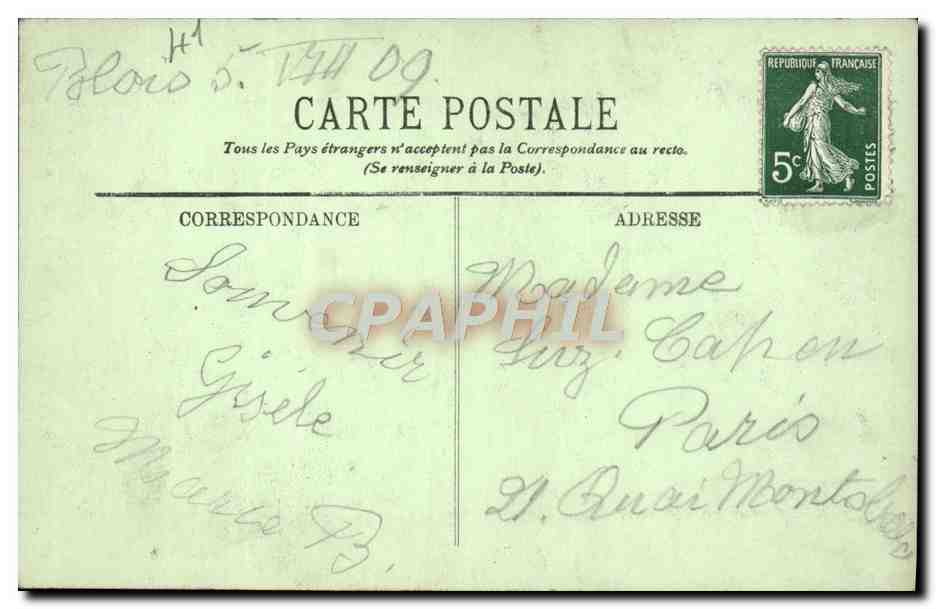 H1
Blois 5. VIII 09.
CARTE POSTALE
Tous les Pays étrangers n'acceptent pas la Correspondance au recto.
(Se renseigner à la Poste).
REPUBLIQUE FRANÇAISE
5c
POSTES
CORRESPONDANCE
ADRESSE
Souvenir
Gisèle
B.
Madame
Suz. Capon
Paris
21. Quai Montebello
CPAPHIL